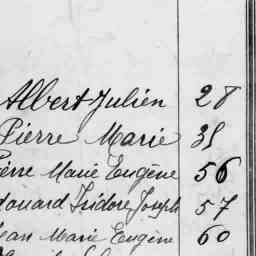 Albert Julien 28
Pierre Marie 35
Pierre Marie Eugène 56
Edouard Isidore Joseph 57
Jean Marie Eugène 60